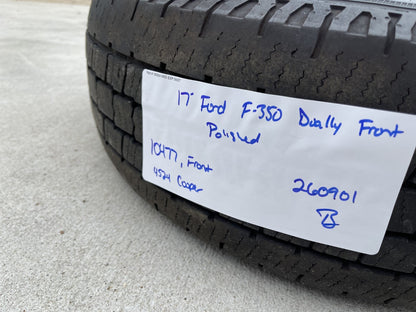 17" Ford F-350 Dually Front
Polished
10477, Front
4524 Cooper
260901
B